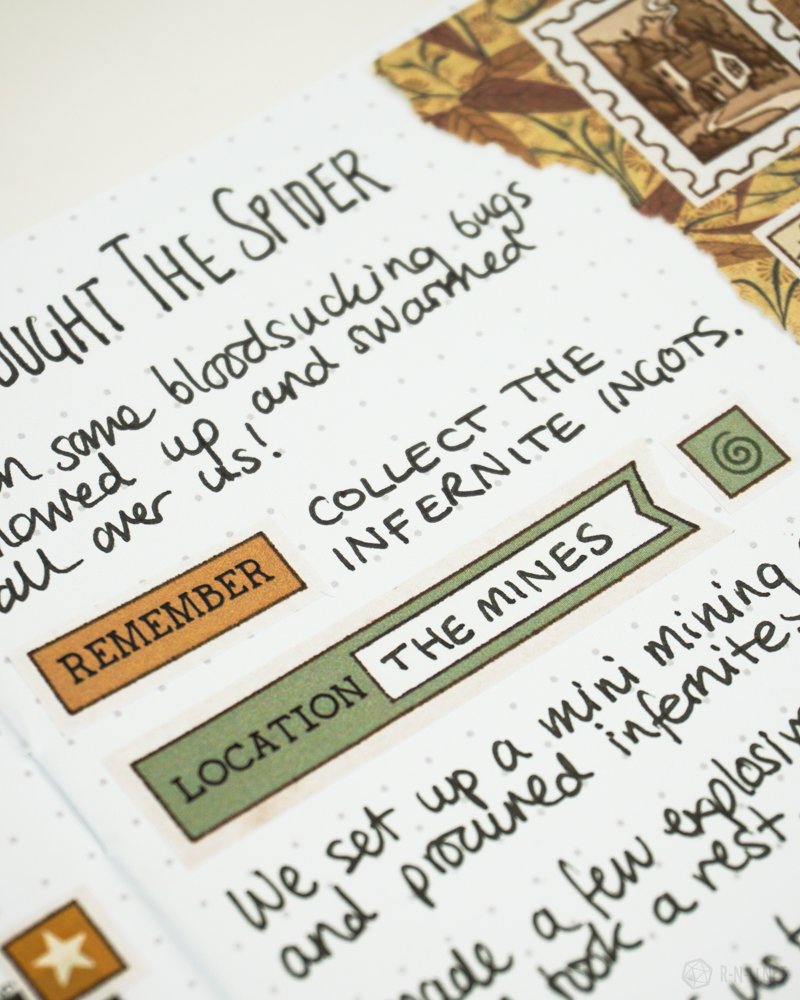 THE SPIDER
some bloodsucking bugs
up and swarmed
all over us!
REMEMBER
COLLECT THE
INFERNITE INGOTS.
LOCATION THE MINES
We set up a mini mining
and procured infernite,
a few explosive
took a rest